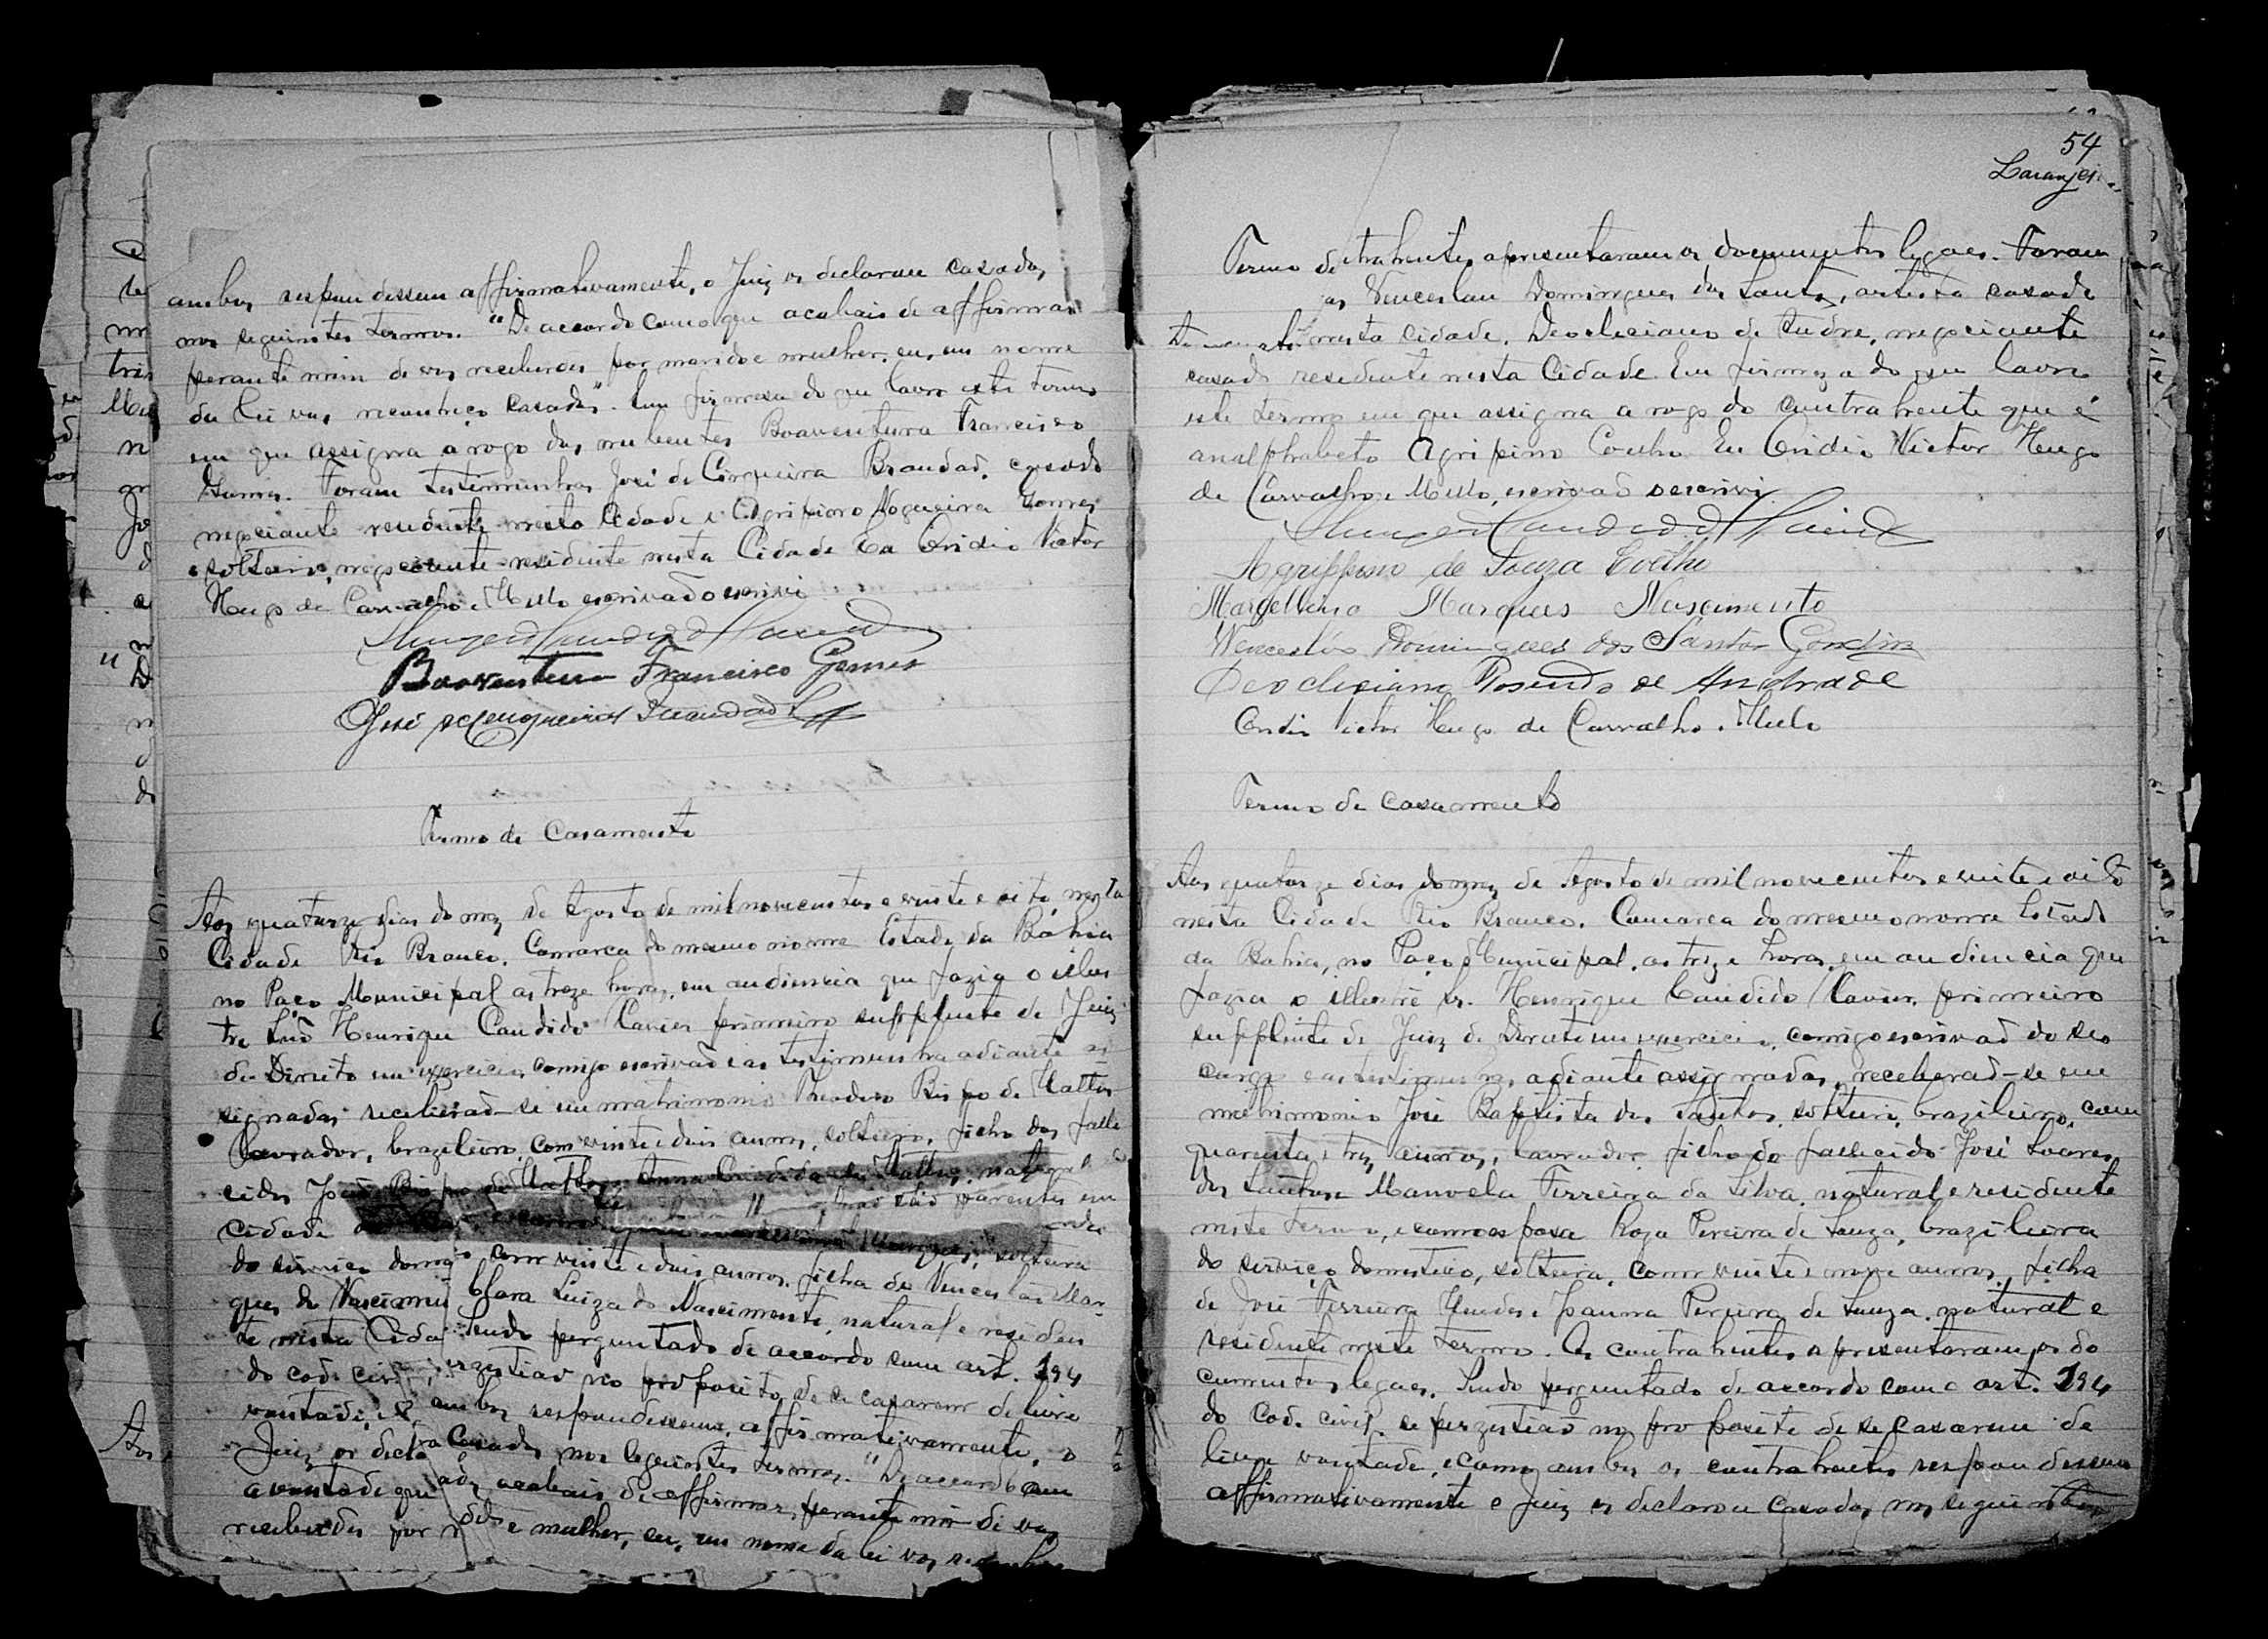 ambos respondessem affirmativamente, o Juiz os declarou casados
nos seguintes termos. "De accordo com o que acabais de affirmar
perante mim de vos receberdes por marido e mulher, eu, em nome
da lei vos reconheço casados". Em firmesa do que lavro este termo
em que assigna a rogo dos nubentes Boaventura Francisco
Gomes. Foram testemunhas José de Cirqueira Brandão, casado
negociante residente nesta Cidade e Agripino Nogueira Gomes
solteiro, negociante residente nesta Cidade Eu Ovidio Victor
Hugo de Carvalho e Mello escrivão o escrivi
Boaventura Francisco Gomes
José de Cerqueira Brandão
Termo de Casamento
Aos quatorze dias do mez de Agosto de mil novecentos e vinte e oito, nesta
Cidade Rio Branco, Comarca do mesmo nome Estado da Bahia
no Paço Municipal as treze horas, em audiencia que fazia o illus
tre Snr Henrique Candido Xavier primeiro supplente de Juiz
de Direito em exercicio, comigo escrivão e as testemunha adiante as
signadas receberão-se em matrimonio Theodoro Bispo de Mattos
lavrador, brazileiro, com vinte e dois annos, solteiro, filho dos falle
cidos José Bispo de Mattos Anna Candida de Mattos, natural
cidade não são parentes em
Marques, solteira
do serviço com vinte e dois annos, filha de Venceslau Mar
ques do Nascimen Clara Luiza do Nascimento, natural e residen
te nesta Cida Sendo perguntado de accordo com art. 194
do cod. civ rzistião no proposito de se casarem de livre
vontade, e ambos respondessem affirmativamente, o
Juiz os decla casados nos seguintes termos. "De accordo com
a vontade que acabais de affirmar, perante mim de vos
receberdes por e mulher, eu, em nome da lei vos
54
Termo de
trahentes apresentaram os documentos legaes. Foram
Venceslau Domingues dos Santos, artista casado
nesta cidade, Deocleciano de Andre, negociante
casado residente nesta Cidade Em firmeza do que lavro
este termo em que assigna a rogo do contrahente que é
analphabeto Agripino Coelho Eu Ovidio Victor Hugo
de Carvalho e Mello, escrivão o escrivi
Agrippino de Souza Coelho
Marcellino Marques Nascimento
Wenceslão Domingues dos Santos Gondim
Deocleciano Rosendo de Andrade
Ovidio Victor Hugo de Carvalho e Mello
Termo de casamento
Aos quatorze dias do mez de Agosto de mil novecentos e vinte e oito
nesta Cidade Rio Branco, Comarca do mesmo nome Estado
da Bahia, no Paço Municipal, as treze horas, em audiencia que
fazia o illustre Sr. Henrique Candido Xavier, primeiro
supplente de Juiz de Direito em exercicio, comigo escrivão do seo
cargo e as testimunhas adiante assignadas, receberão-se em
matrimonio José Baptista dos Santos, solteiro, brazileiro, com
quarenta e tres annos, lavrador, filho do fallecido José Soares
dos Santos e Manoela Ferreira da Silva, natural e residente
neste termo, e como esposa Roza Pereira de Souza, brazileira
do serviço domestico, solteira, com vinte e nove annos, filha
de José Ferreira Mendes e Joanna Pereira de Souza, natural e
residente neste termo. Os contrahentes apresentaram os do
cumentos legaes. Sendo perguntado de accordo com o art. 194
do Cod. civil, se perzistião no proposito de se casarem de
livre vontade, e como ambos os contrahentes respondessem
affirmativamente o Juiz os declarou casados, nos seguintes